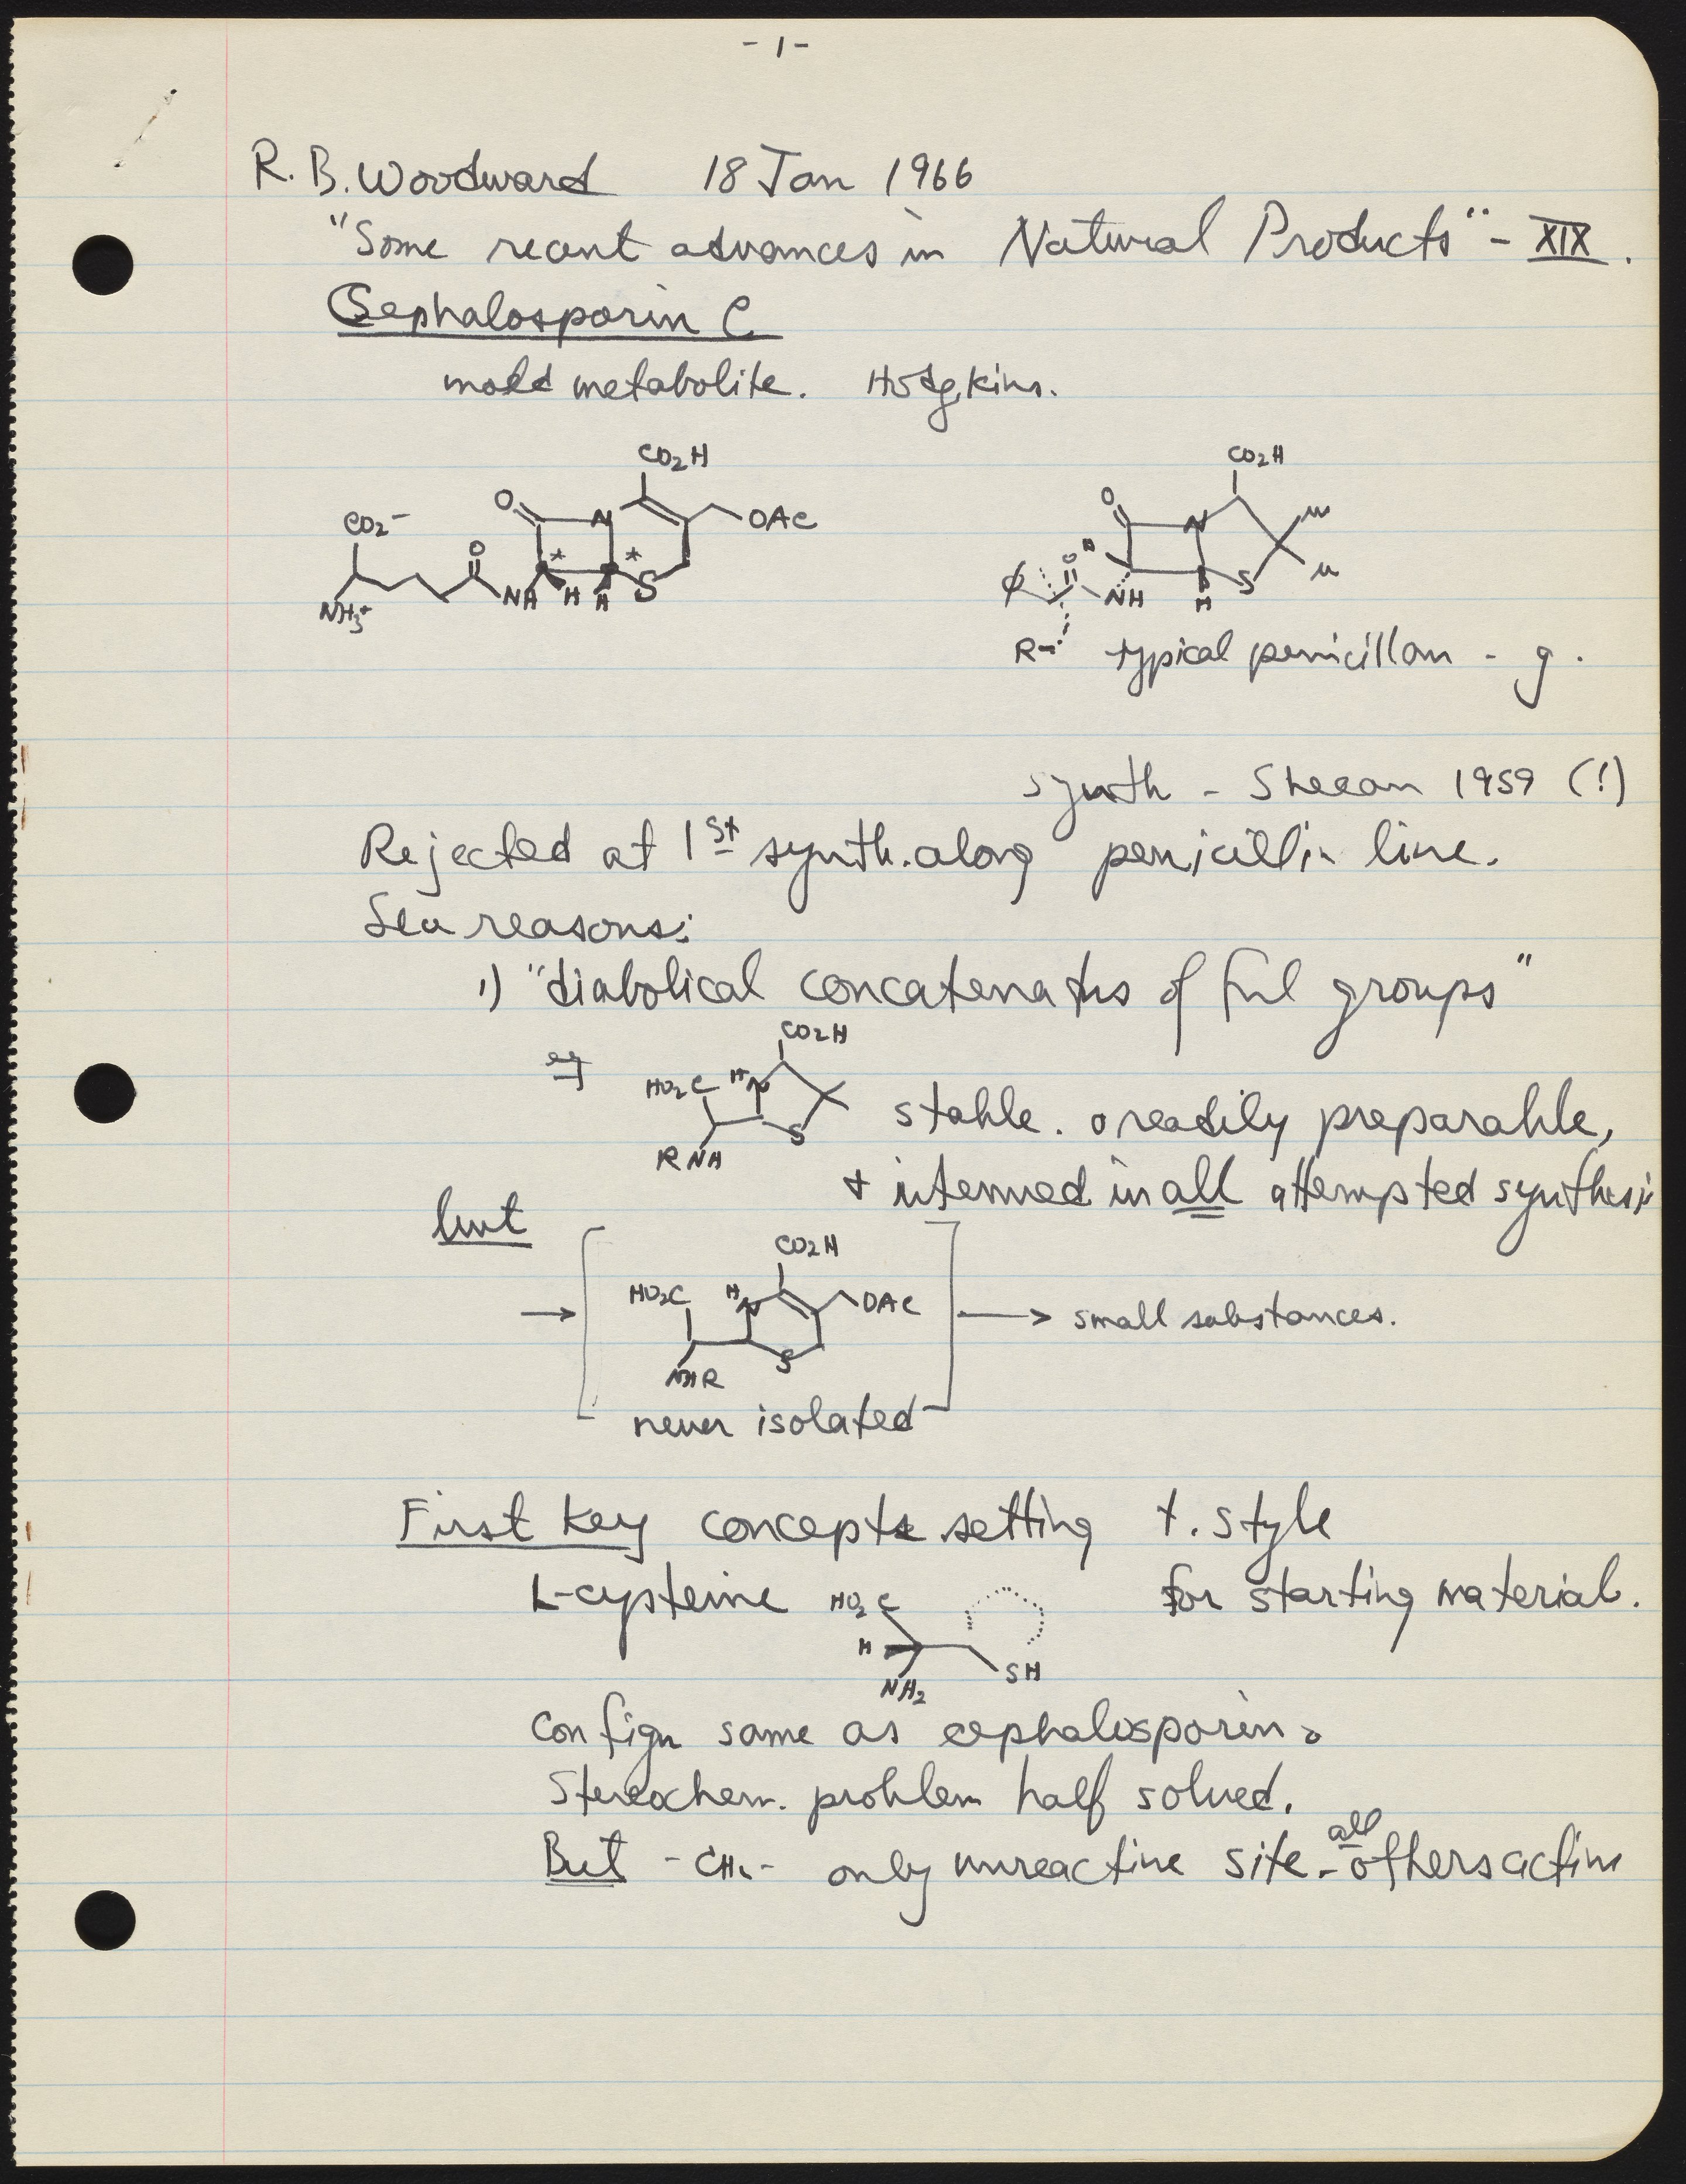 - 1 -
R. B. Woodward 18 Jan 1966
"Some recent advances in Natural Products" - XIX.
Cephalosporin C
mold metabolite. Hodgkins.
CO2H CO2H
O N OAc O N m
CO2- * * H m
O S φ O S
NH3+ NH H H NH H
R- typical penicillam - g.
synth - Sheean 1959 (!)
Rejected at 1st synth. along penicillin line.
Sev reasons:
1) "diabolical concatenatns of fnl groups"
CO2H
eg HO2C HN
S stable. & readily preparable,
RNH
+ intermed in all attempted synthesis
but
CO2H
HO2C HN OAc
→ → small substances.
S
NHR
never isolated
First key concept setting t. style
L-cysteine HO2C for starting material.
H SH
NH2
Config same as cephalosporin.
Stereochem. problem half solved.
But -CH2- only unreactive site - all others active